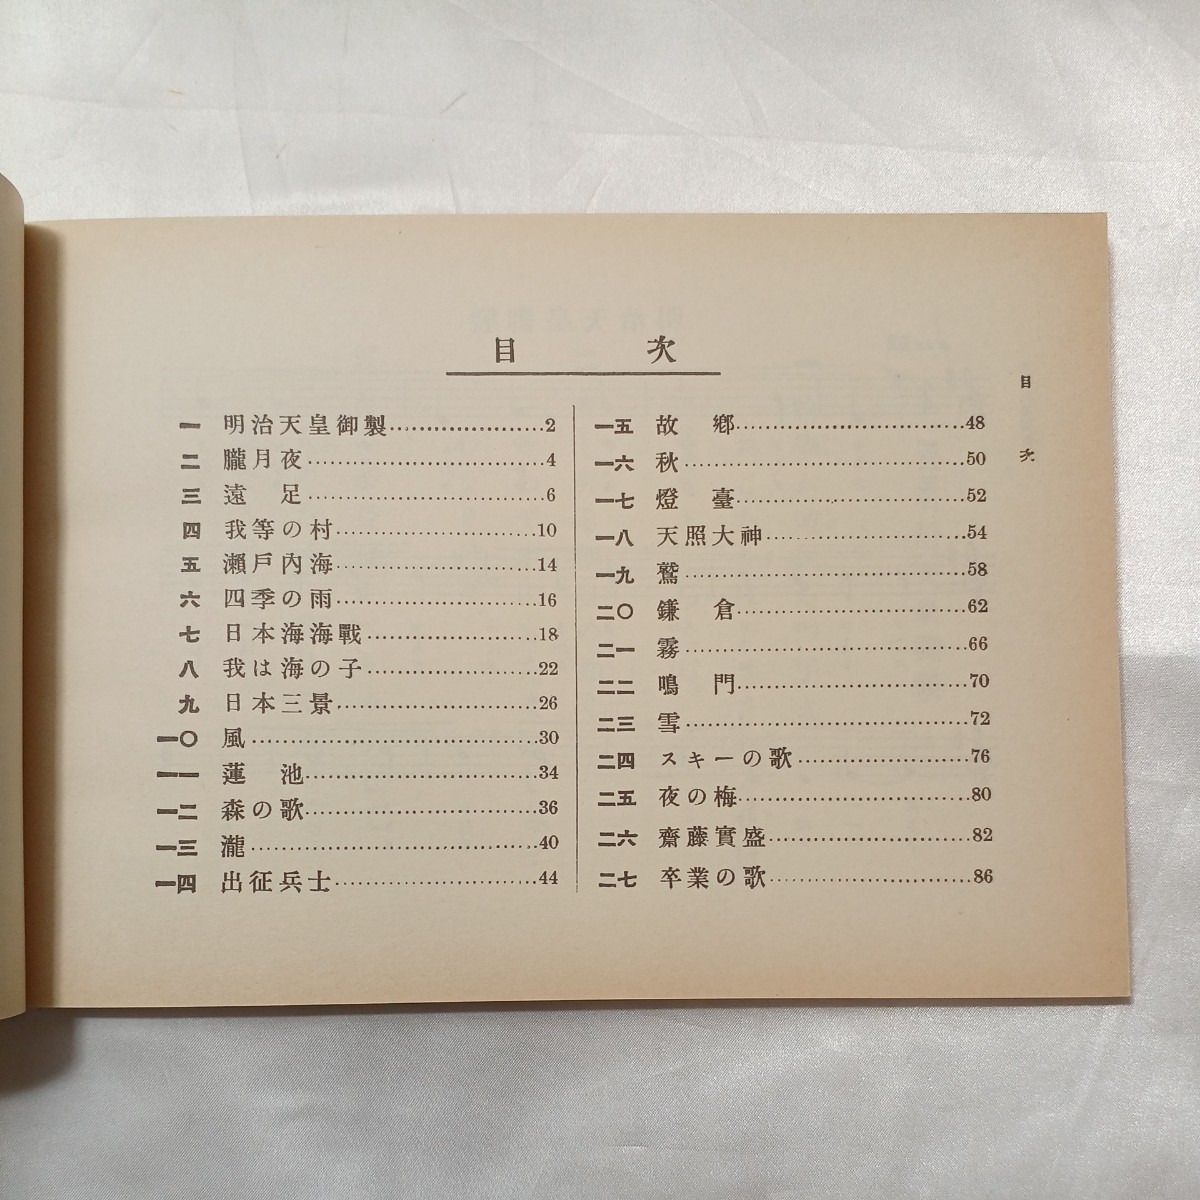 目次
一 明治天皇御製……………………2
二 朧月夜……………………4
三 遠足……………………6
四 我等の村……………………10
五 瀨戸內海……………………14
六 四季の雨……………………16
七 日本海海戰……………………18
八 我は海の子……………………22
九 日本三景……………………26
一〇 風……………………30
一一 蓮池……………………34
一二 森の歌……………………36
一三 瀧……………………40
一四 出征兵士……………………44
一五 故鄕……………………48
一六 秋……………………50
一七 燈臺……………………52
一八 天照大神……………………54
一九 鷲……………………58
二〇 鎌倉……………………62
二一 霧……………………66
二二 鳴門……………………70
二三 雪……………………72
二四 スキーの歌……………………76
二五 夜の梅……………………80
二六 齋藤實盛……………………82
二七 卒業の歌……………………86
目次